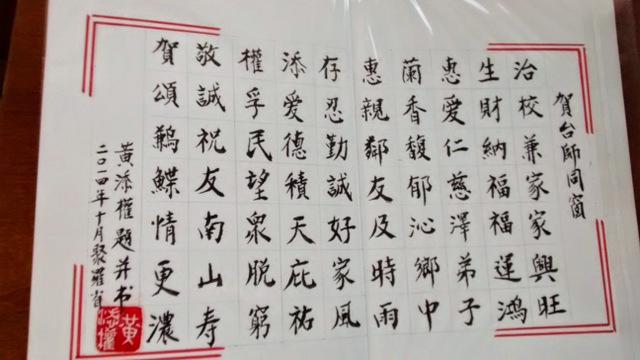 賀台師同窗
治校兼家家興旺
生財納福福運鴻
惠愛仁慈澤弟子
蘭香馥郁沁鄉中
惠親鄰友及時雨
存忍勤誠好家風
添愛德積天庇祐
權孚民望衆脫窮
敬誠祝友南山寿
賀頌鶼鰈情更濃
黃添權題并书
二〇一四年十月聚羅省
黃添權